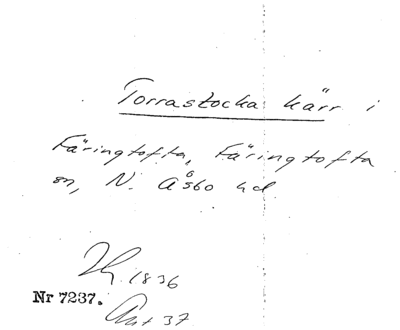 Torrastocka kärr i
Färingtofta, Färingtofta
sn, N. Åsbo hd.
1836
Nr 7237.
Ant 37